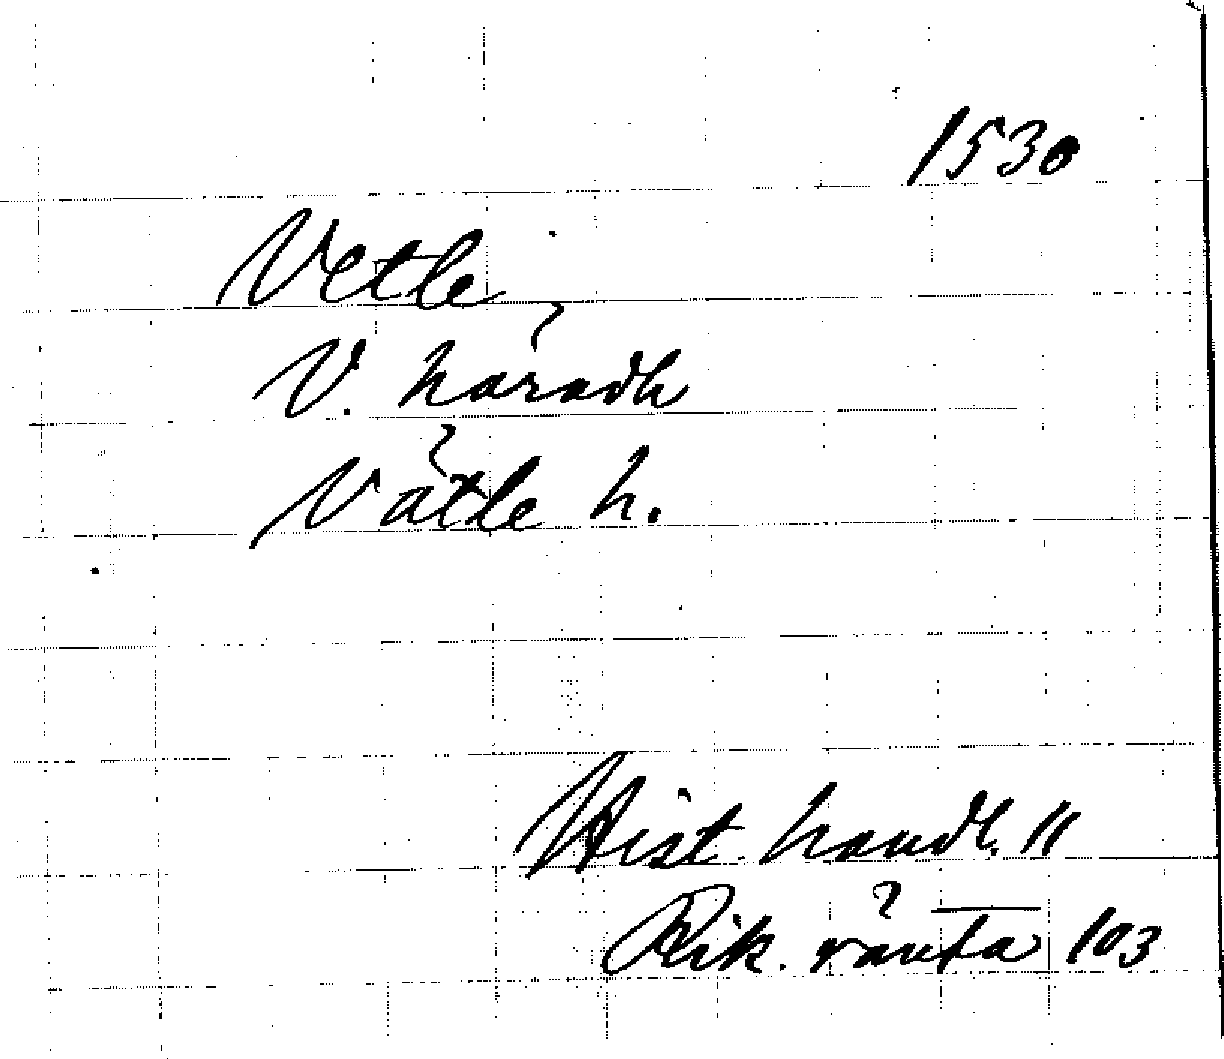 1530
Vetle
V. häradh
Vätle h.
Hist. handl. 11
Rik. ränta 103